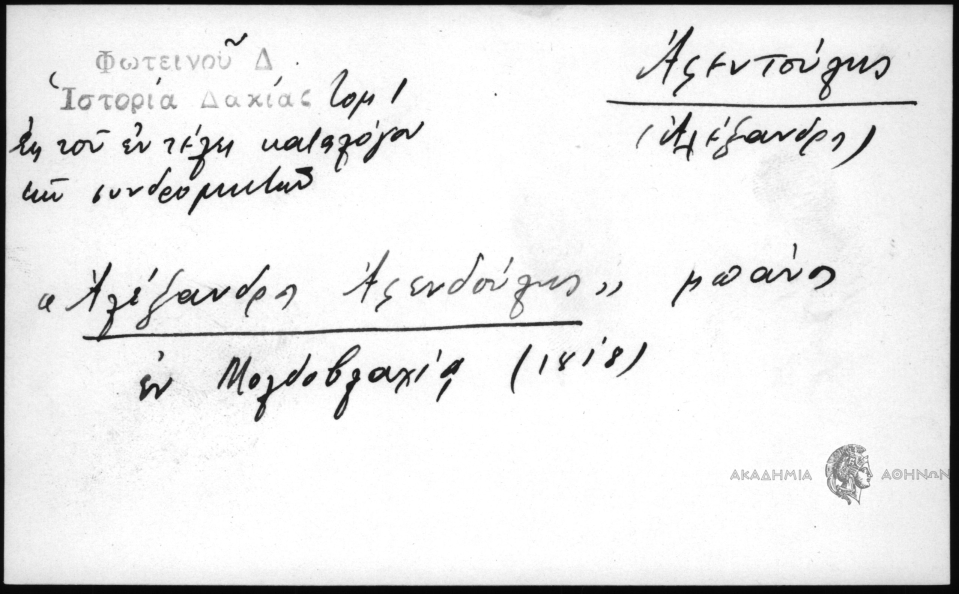 Φωτεινοῦ Δ
Ἱστορία Δακίας Τομ 1
Ἐκ τοῦ ἐν τέλει καταλόγου
τῶν συνδρομητῶν
Ἀρεντούλης
(Ἀλέξανδρος)
"Ἀλέξανδρος Ἀρενδούλης" μπάνος
ἐν Μολδοβλαχίᾳ (1818)
ΑΚΑΔΗΜΙΑ ΑΘΗΝΩΝ